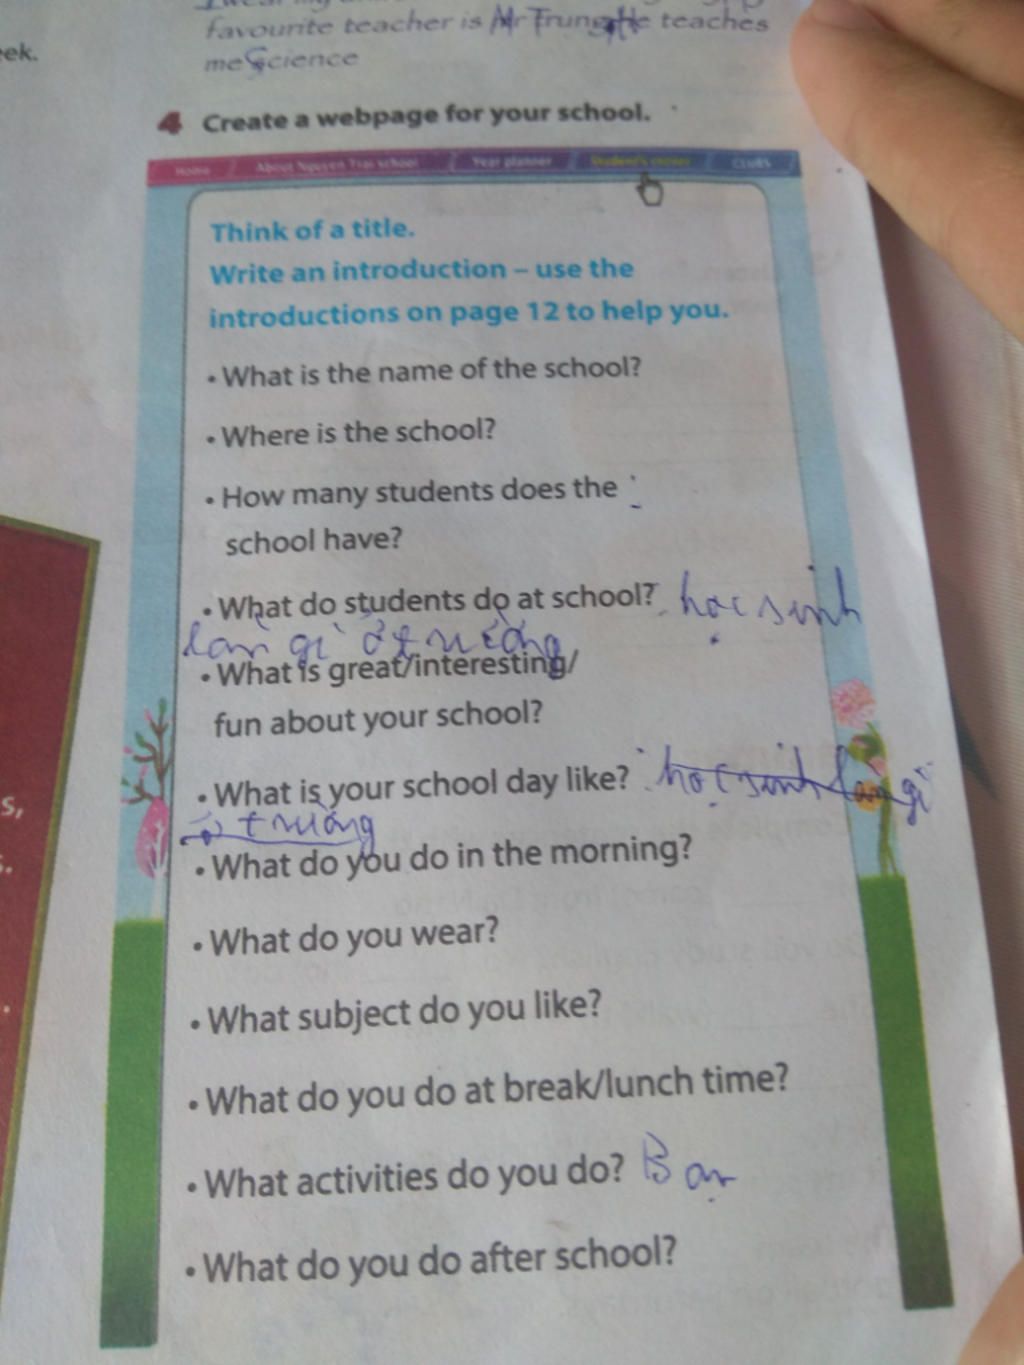 favourite teacher is Mr Trung He teaches
eek.
me Science
4 Create a webpage for your school.
Home About Nguyen Trai school Year planner Student's corner CLUBS
Think of a title.
Write an introduction – use the
introductions on page 12 to help you.
• What is the name of the school?
• Where is the school?
• How many students does the
school have?
• What do students do at school? học sinh
làm gì ở trường
• What is great/interesting/
fun about your school?
• What is your school day like? học sinh làm gì
ở trường
• What do you do in the morning?
• What do you wear?
• What subject do you like?
• What do you do at break/lunch time?
• What activities do you do? Bạn
• What do you do after school?